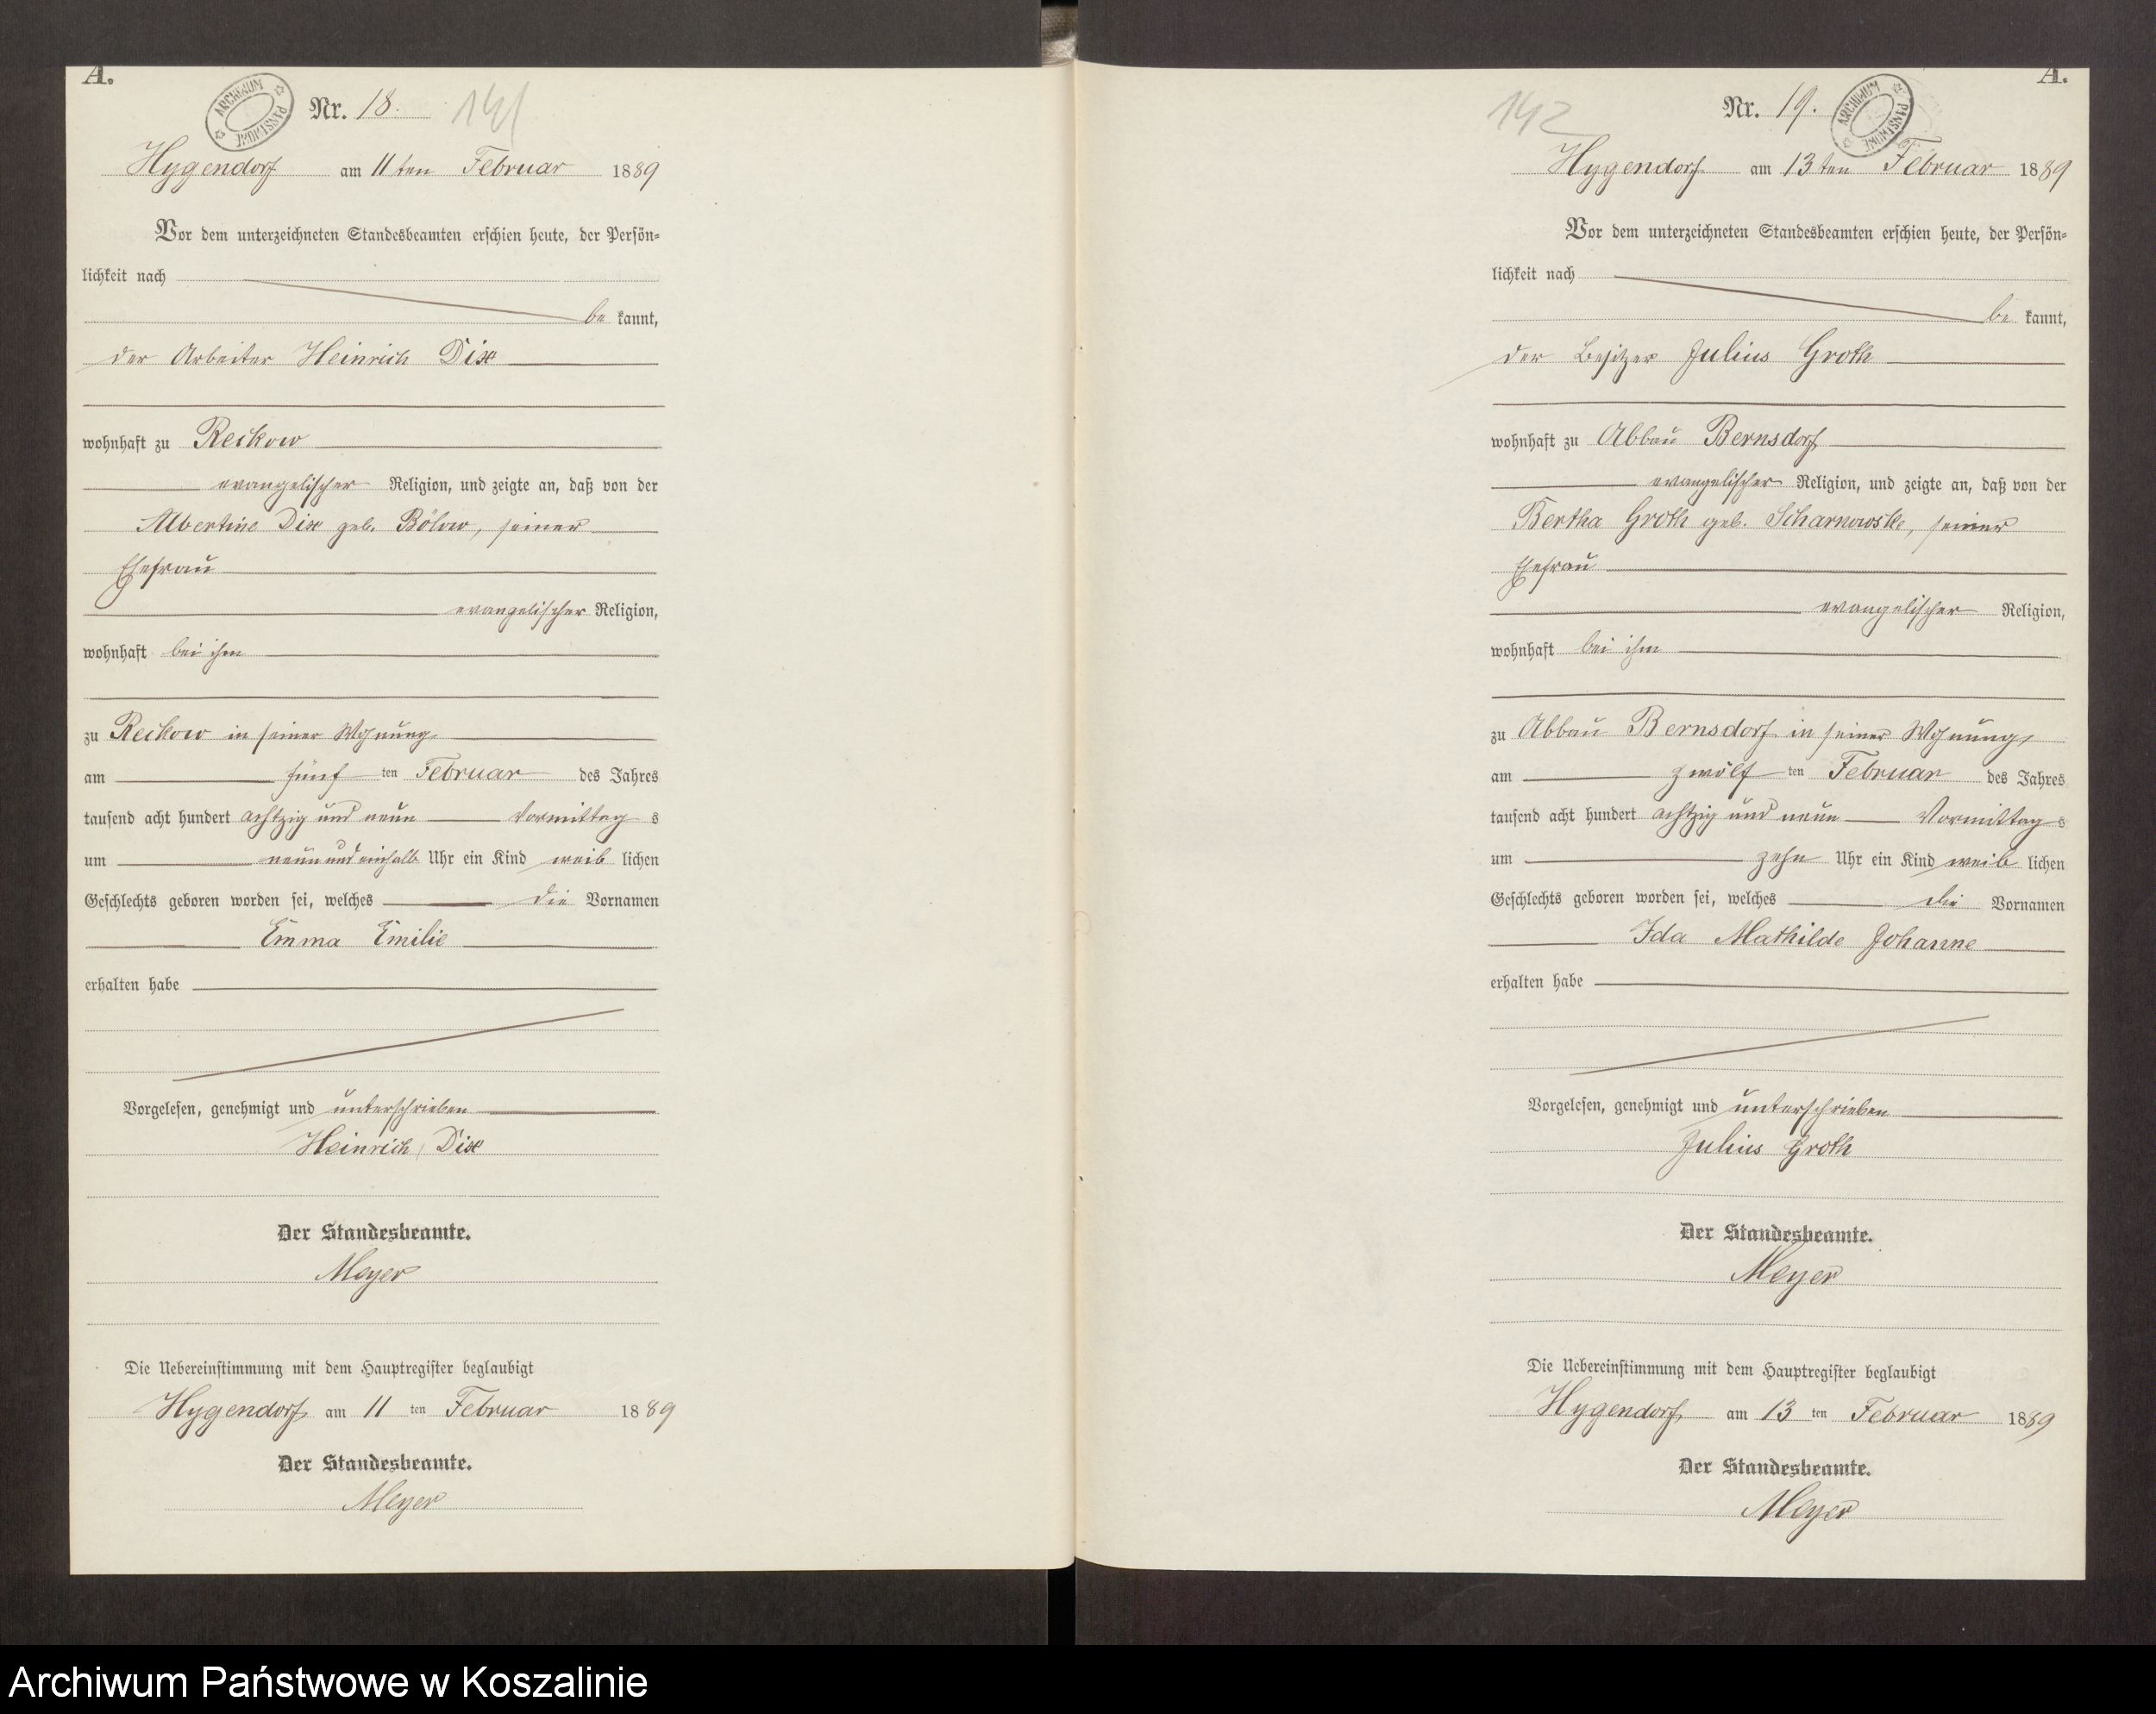 A.
ARCHIWUM PAŃSTWOWE
Nr. 18. 141
Hygendorf am 11ten Februar 1889
Vor dem unterzeichneten Standesbeamten erschien heute, der Persön=
lichkeit nach
be kannt,
der Arbeiter Heinrich Dix
wohnhaft zu Reckow
evangelischer Religion, und zeigte an, daß von der
Albertine Dix geb. Bölow, seiner
Ehefrau
evangelischer Religion,
wohnhaft bei ihm
zu Reckow in seiner Wohnung,
am fünf ten Februar des Jahres
tausend acht hundert achtzig und neun Vormittag s
um neun und einhalb Uhr ein Kind weib lichen
Geschlechts geboren worden sei, welches die Vornamen
Emma Emilie
erhalten habe
Vorgelesen, genehmigt und unterschrieben
Heinrich Dix
Der Standesbeamte.
Meyer
Die Uebereinstimmung mit dem Hauptregister beglaubigt
Hygendorf am 11 ten Februar 1889
Der Standesbeamte.
Meyer
A.
142 Nr. 19.
ARCHIWUM PAŃSTWOWE
Hygendorf am 13ten Februar 1889
Vor dem unterzeichneten Standesbeamten erschien heute, der Persön=
lichkeit nach
be kannt,
der Besitzer Julius Groth
wohnhaft zu Abbau Bernsdorf
evangelischer Religion, und zeigte an, daß von der
Bertha Groth geb. Scharnowske, seiner
Ehefrau
evangelischer Religion,
wohnhaft bei ihm
zu Abbau Bernsdorf in seiner Wohnung,
am zwölf ten Februar des Jahres
tausend acht hundert achtzig und neun Vormittag s
um zehn Uhr ein Kind weib lichen
Geschlechts geboren worden sei, welches die Vornamen
Ida Mathilde Johanne
erhalten habe
Vorgelesen, genehmigt und unterschrieben
Julius Groth
Der Standesbeamte.
Meyer
Die Uebereinstimmung mit dem Hauptregister beglaubigt
Hygendorf am 13 ten Februar 1889
Der Standesbeamte.
Meyer
Archiwum Państwowe w Koszalinie